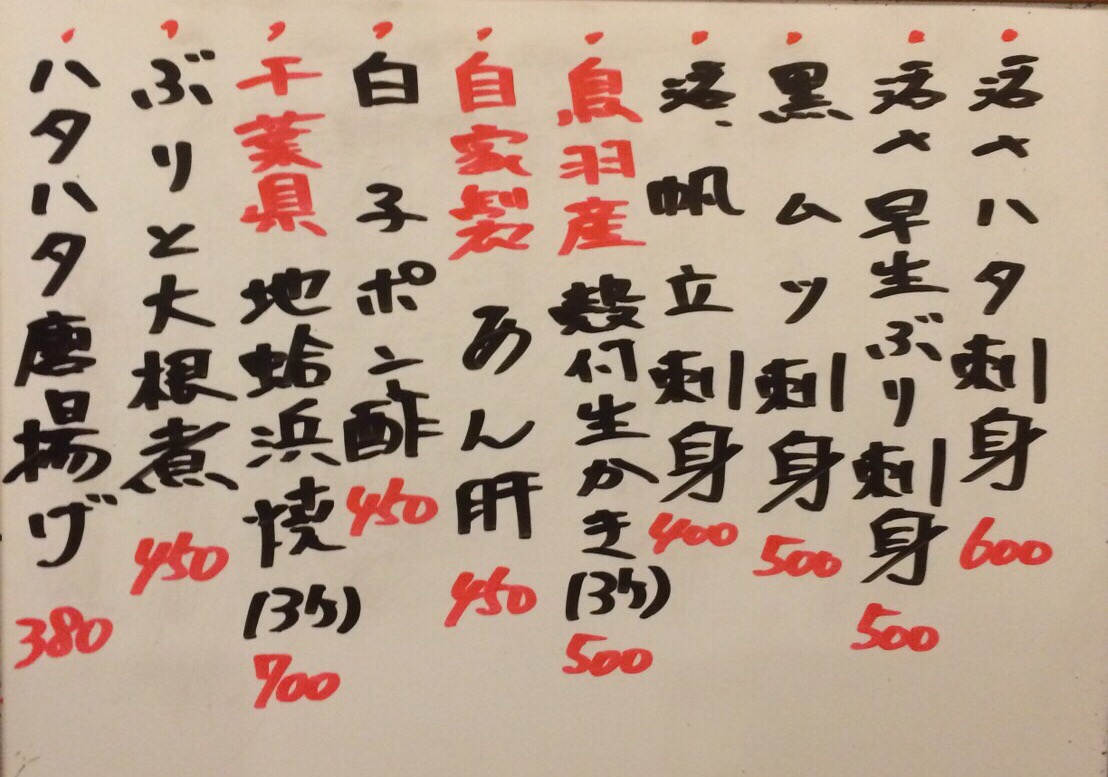 活〆ハタ刺身 600
活〆早生ぶり刺身 500
黒ムツ刺身 500
活帆立刺身 400
鳥羽産 殻付生かき(3ケ) 500
自家製 あん肝 450
白子ポン酢 450
千葉県 地蛤浜焼(3ケ) 700
ぶりと大根煮 450
ハタハタ唐揚げ 380